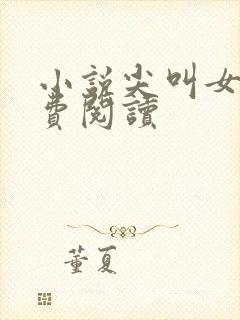 小説尖叫女
費閱讀
董夏